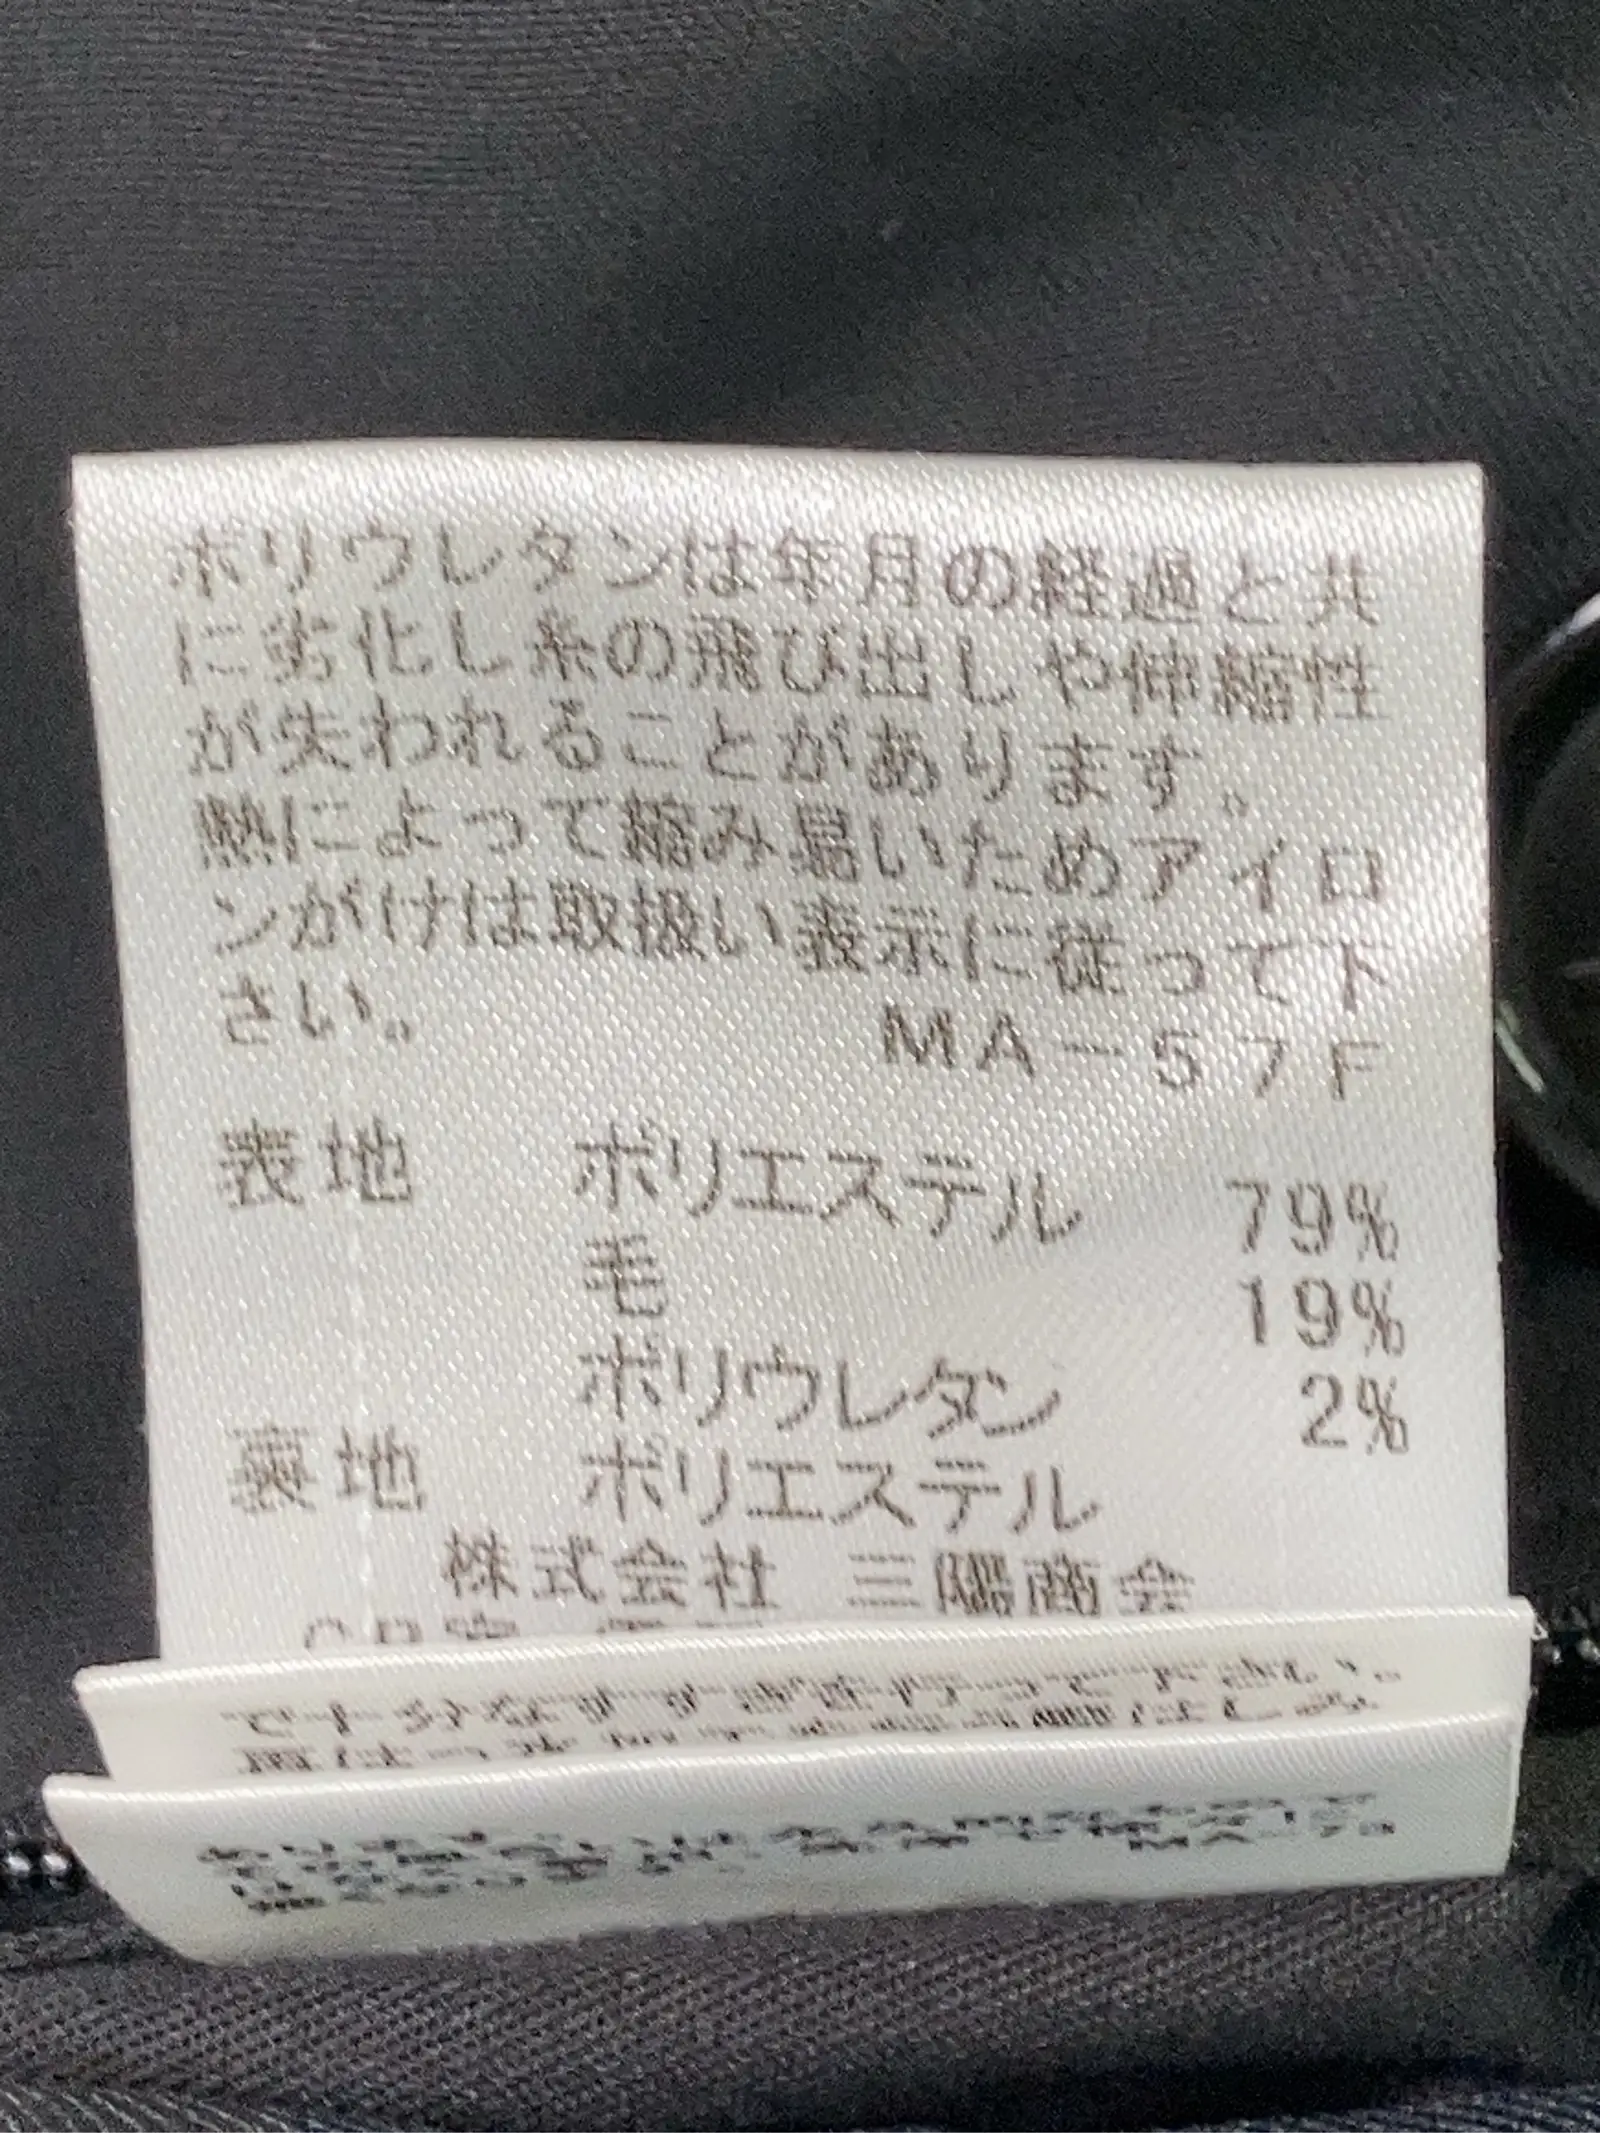 ポリウレタンは年月の経過と共
に劣化し糸の飛び出しや伸縮性
が失われることがあります。
熱によって縮み易いためアイロ
ンがけは取扱い表示に従って下
さい。 MA－57F
表地 ポリエステル 79%
毛 19%
ポリウレタン 2%
裏地 ポリエステル
株式会社 三陽商会